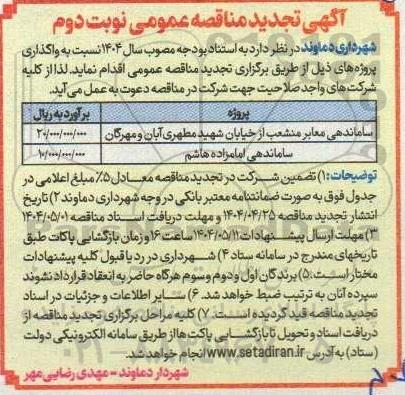 آگهی تجدید مناقصه عمومی نوبت دوم
شهرداری دماوند در نظر دارد به استناد بودجه مصوب سال ۱۴۰۴ نسبت به واگذاری
پروژه های ذیل از طریق برگزاری تجدید مناقصه عمومی اقدام نماید. لذا از کلیه
شرکت های واجد صلاحیت جهت شرکت در مناقصه دعوت به عمل می آید.
پروژه برآورد به ریال
ساماندهی معابر منشعب از خیابان شهید مطهری آبان و مهرگان ۲۰/۰۰۰/۰۰۰/۰۰۰
ساماندهی امامزاده هاشم ۱۰/۰۰۰/۰۰۰/۰۰۰
توضیحات: ۱) تضمین شرکت در تجدید مناقصه معادل ۵٪ مبلغ اعلامی در
جدول فوق به صورت ضمانتنامه معتبر بانکی در وجه شهرداری دماوند ۲) تاریخ
انتشار تجدید مناقصه ۱۴۰۴/۰۴/۲۵ و مهلت دریافت اسناد مناقصه ۱۴۰۴/۰۵/۰۱
۳) مهلت ارسال پیشنهادات ۱۴۰۴/۰۵/۱۱ ساعت ۱۶ و زمان بازگشایی پاکات طبق
تاریخهای مندرج در سامانه ستاد ۴) شهرداری در رد یا قبول کلیه پیشنهادات
مختار است: ۵) برندگان اول و دوم و سوم هرگاه حاضر به انعقاد قرارداد نشوند
سپرده آنان به ترتیب ضبط خواهد شد. ۶) سایر اطلاعات و جزئیات در اسناد
تجدید مناقصه قید گردیده است. ۷) کلیه مراحل برگزاری تجدید مناقصه از
دریافت اسناد و تحویل تا بازگشایی پاکت ها از طریق سامانه الکترونیکی دولت
(ستاد) به آدرس www.setadiran.ir انجام خواهد شد.
شهردار دماوند - مهدی رضایی مهر